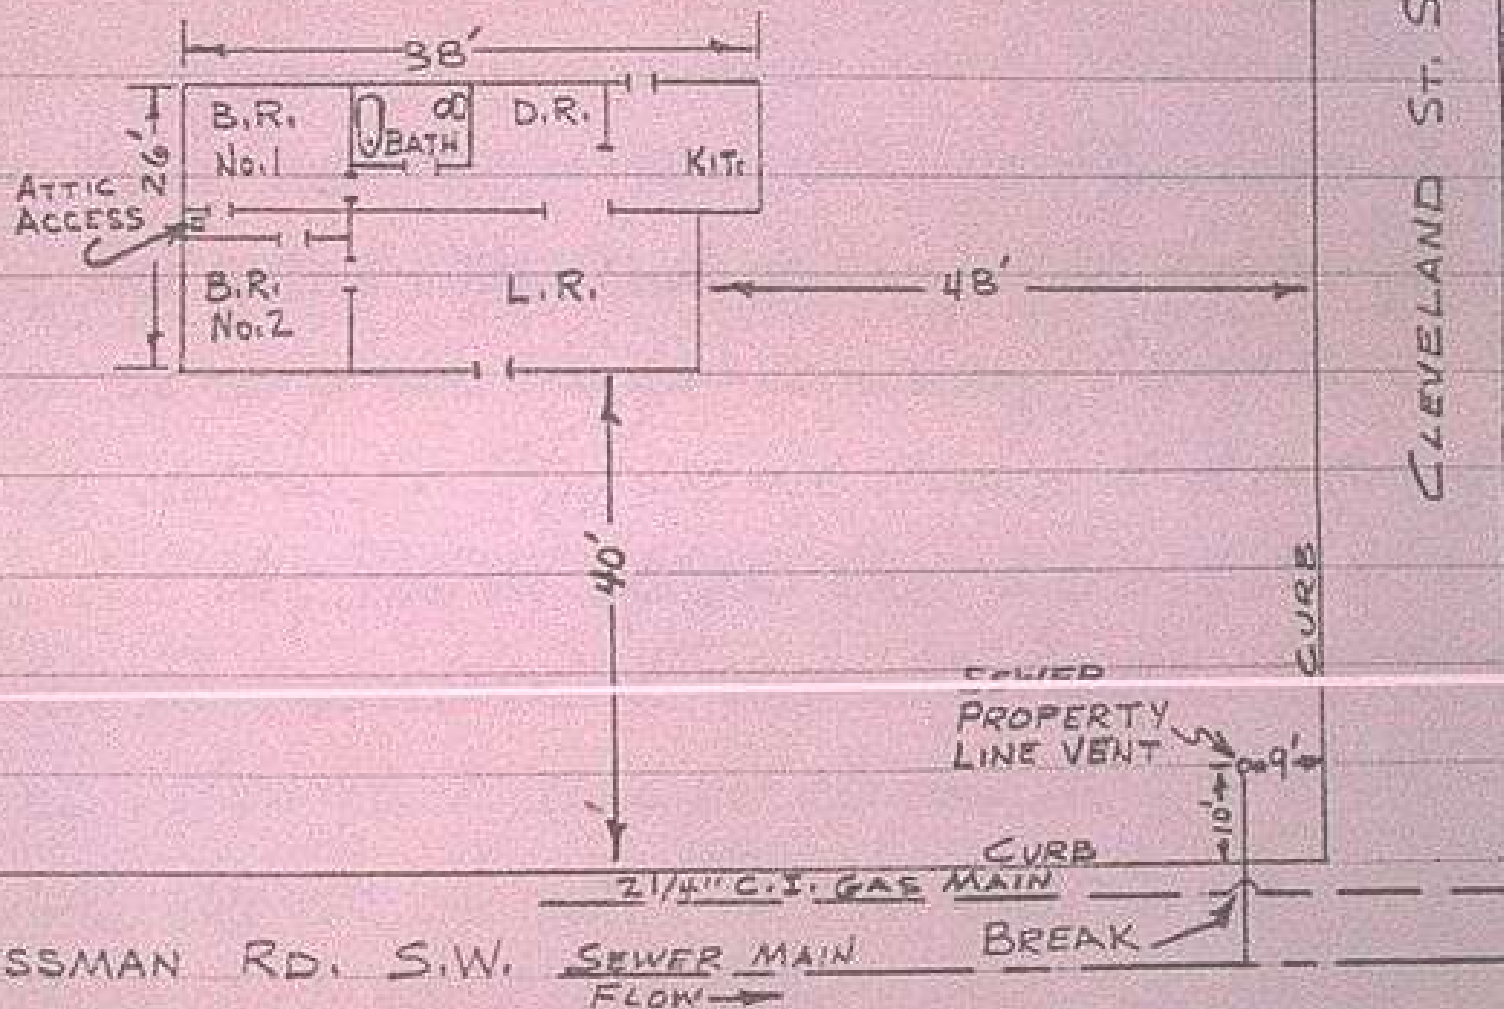 38'
26'
B.R.
No.1
BATH
D.R.
KIT.
ATTIC
ACCESS
B.R.
No.2
L.R.
48'
40'
CLEVELAND ST. S
CURB
PROPERTY
LINE VENT
9'
10'
CURB
2 1/4" C.I. GAS MAIN
BREAK
SSMAN RD. S.W.
SEWER MAIN
FLOW